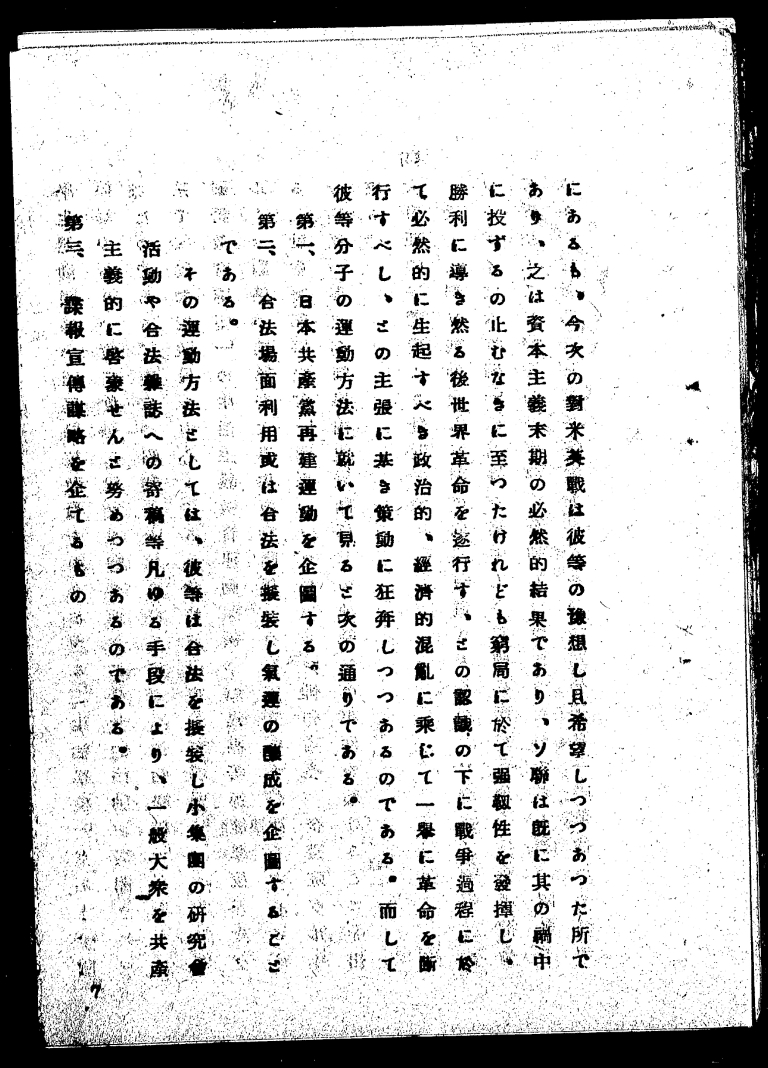 にあるも、今次の對米英戰は彼等の豫想し且希望しつつあつた所で
あり、之は資本主義末期の必然的結果であり、ソ聯は既に其の渦中
に投ずるの止むなきに至つたけれども窮局に於て强靱性を發揮し、
勝利に導き然る後世界革命を遂行す、との認識の下に戰爭過程に於
て必然的に生起すべき政治的、經濟的混亂に乘じて一擧に革命を斷
行すべし、との主張に基き策動に狂奔しつつあるのである。而して
彼等分子の運動方法に就いて見ると次の通りである。
第一、日本共產黨再建運動を企圖する。
第二、合法場面利用或は合法を擬裝し氣運の釀成を企圖すること
である。
その運動方法としては、彼等は合法を擬裝し小集團の硏究會
活動や合法雜誌への寄稿等凡ゆる手段により、一般大衆を共產
主義的に啓蒙せんと努めつつあるのである。
第三、諜報宣傳謀略を企てるもの
7